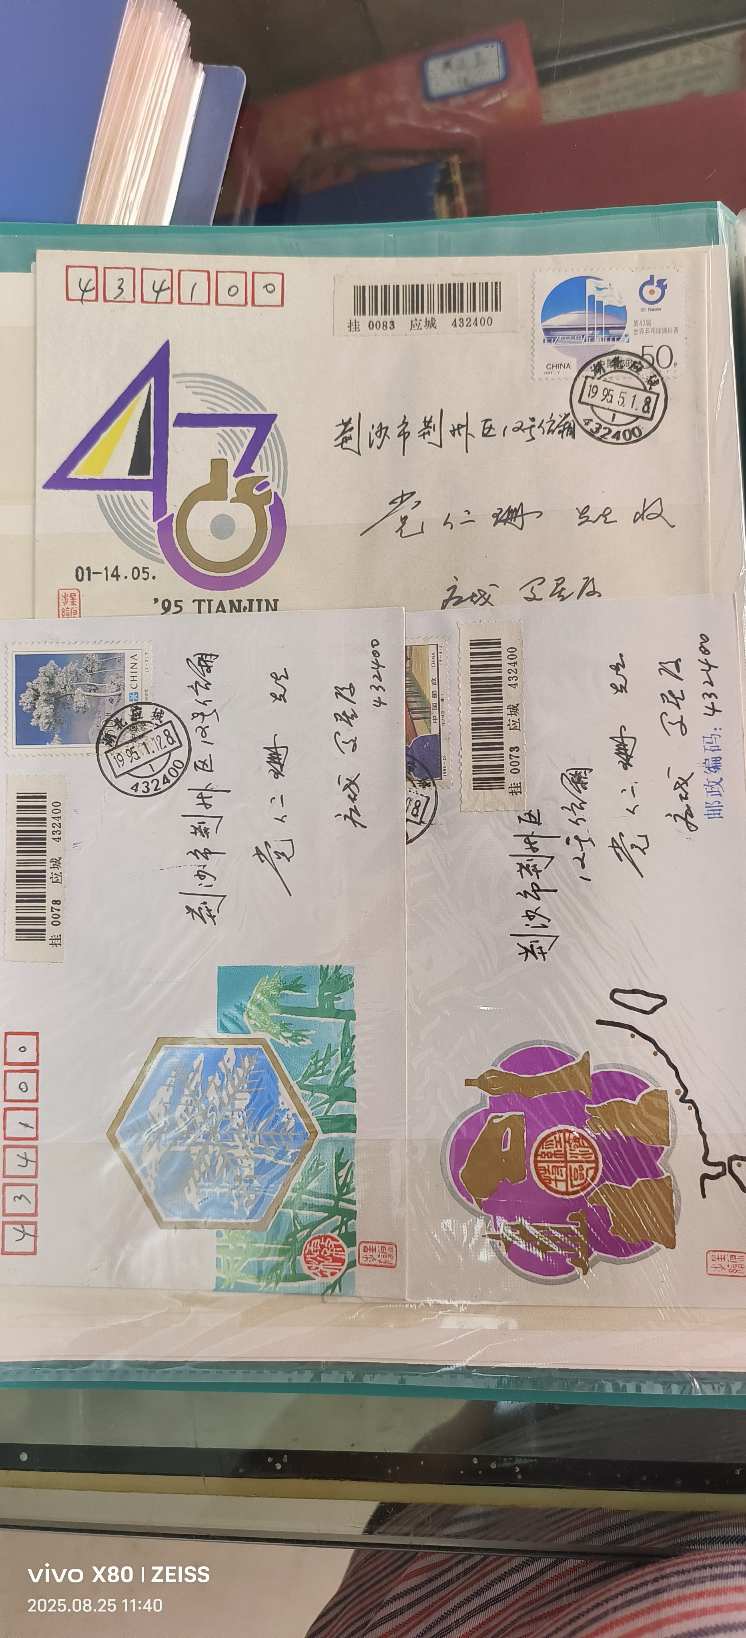 434100
挂 0083 应城 432400
第43届
世界乒乓球锦标赛
CHINA
50分
湖北应城
1995.5.1.8
1
432400
荆沙市荆州区12号信箱
党仁珊 先生 收
应城
43
01-14.05.
'95 TIANJIN
CHINA
湖北应城
1995.1.12.8
1
432400
挂 0078 应城 432400
荆沙市荆州区12号信箱
党仁珊 先生
应城
432400
434100
中国邮政
CHINA
挂 0073 应城 432400
荆沙市荆州区
12号信箱
党仁珊 先生
应城
邮政编码：432400
vivo X80 | ZEISS
2025.08.25 11:40